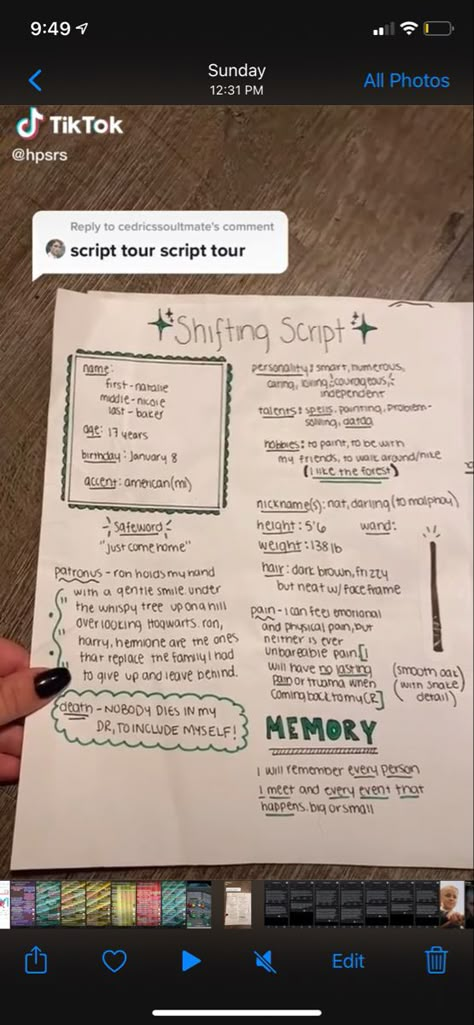 9:49
Sunday
12:31 PM
All Photos
TikTok
@hpsrs
Reply to cedricssoultmate's comment
script tour script tour
Shifting Script
name:
first-natalie
middle-nicole
last-baker
age: 17 years
birthday: January 8
accent: american(mi)
safeword
"just come home"
patronus - ron holds my hand
with a gentle smile under
the whispy tree up on a hill
over looking Hogwarts. ron,
harry, hermione are the ones
that replace the family I had
to give up and leave behind.
death - NOBODY DIES IN MY
DR, TO INCLUDE MYSELF!
personality: smart, humerous,
caring, loving, courageous,
independent
talents: spells, painting, problem-
solving, dada
hobbies: to paint, to be with
my friends, to walk around/hike
(I like the forest)
nickname(s): nat, darling (to malphoy)
height: 5'6 wand:
weight: 138 lb
hair: dark brown, frizzy
but neat w/ face frame
pain - I can feel emotional
and physical pain, but
neither is ever
unbareable pain. [I
will have no lasting
pain or truama when
coming back to my CR]
(smooth oak)
(with snake
detail)
MEMORY
I will remember every person
I meet and every event that
happens. big or small
Edit